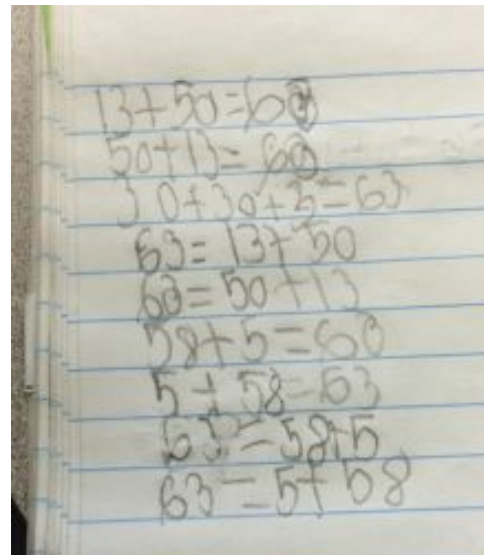 13+50=63
50+13=63
30+30+3=63
63=13+50
63=50+13
58+5=63
5+58=63
63=58+5
63=5+58